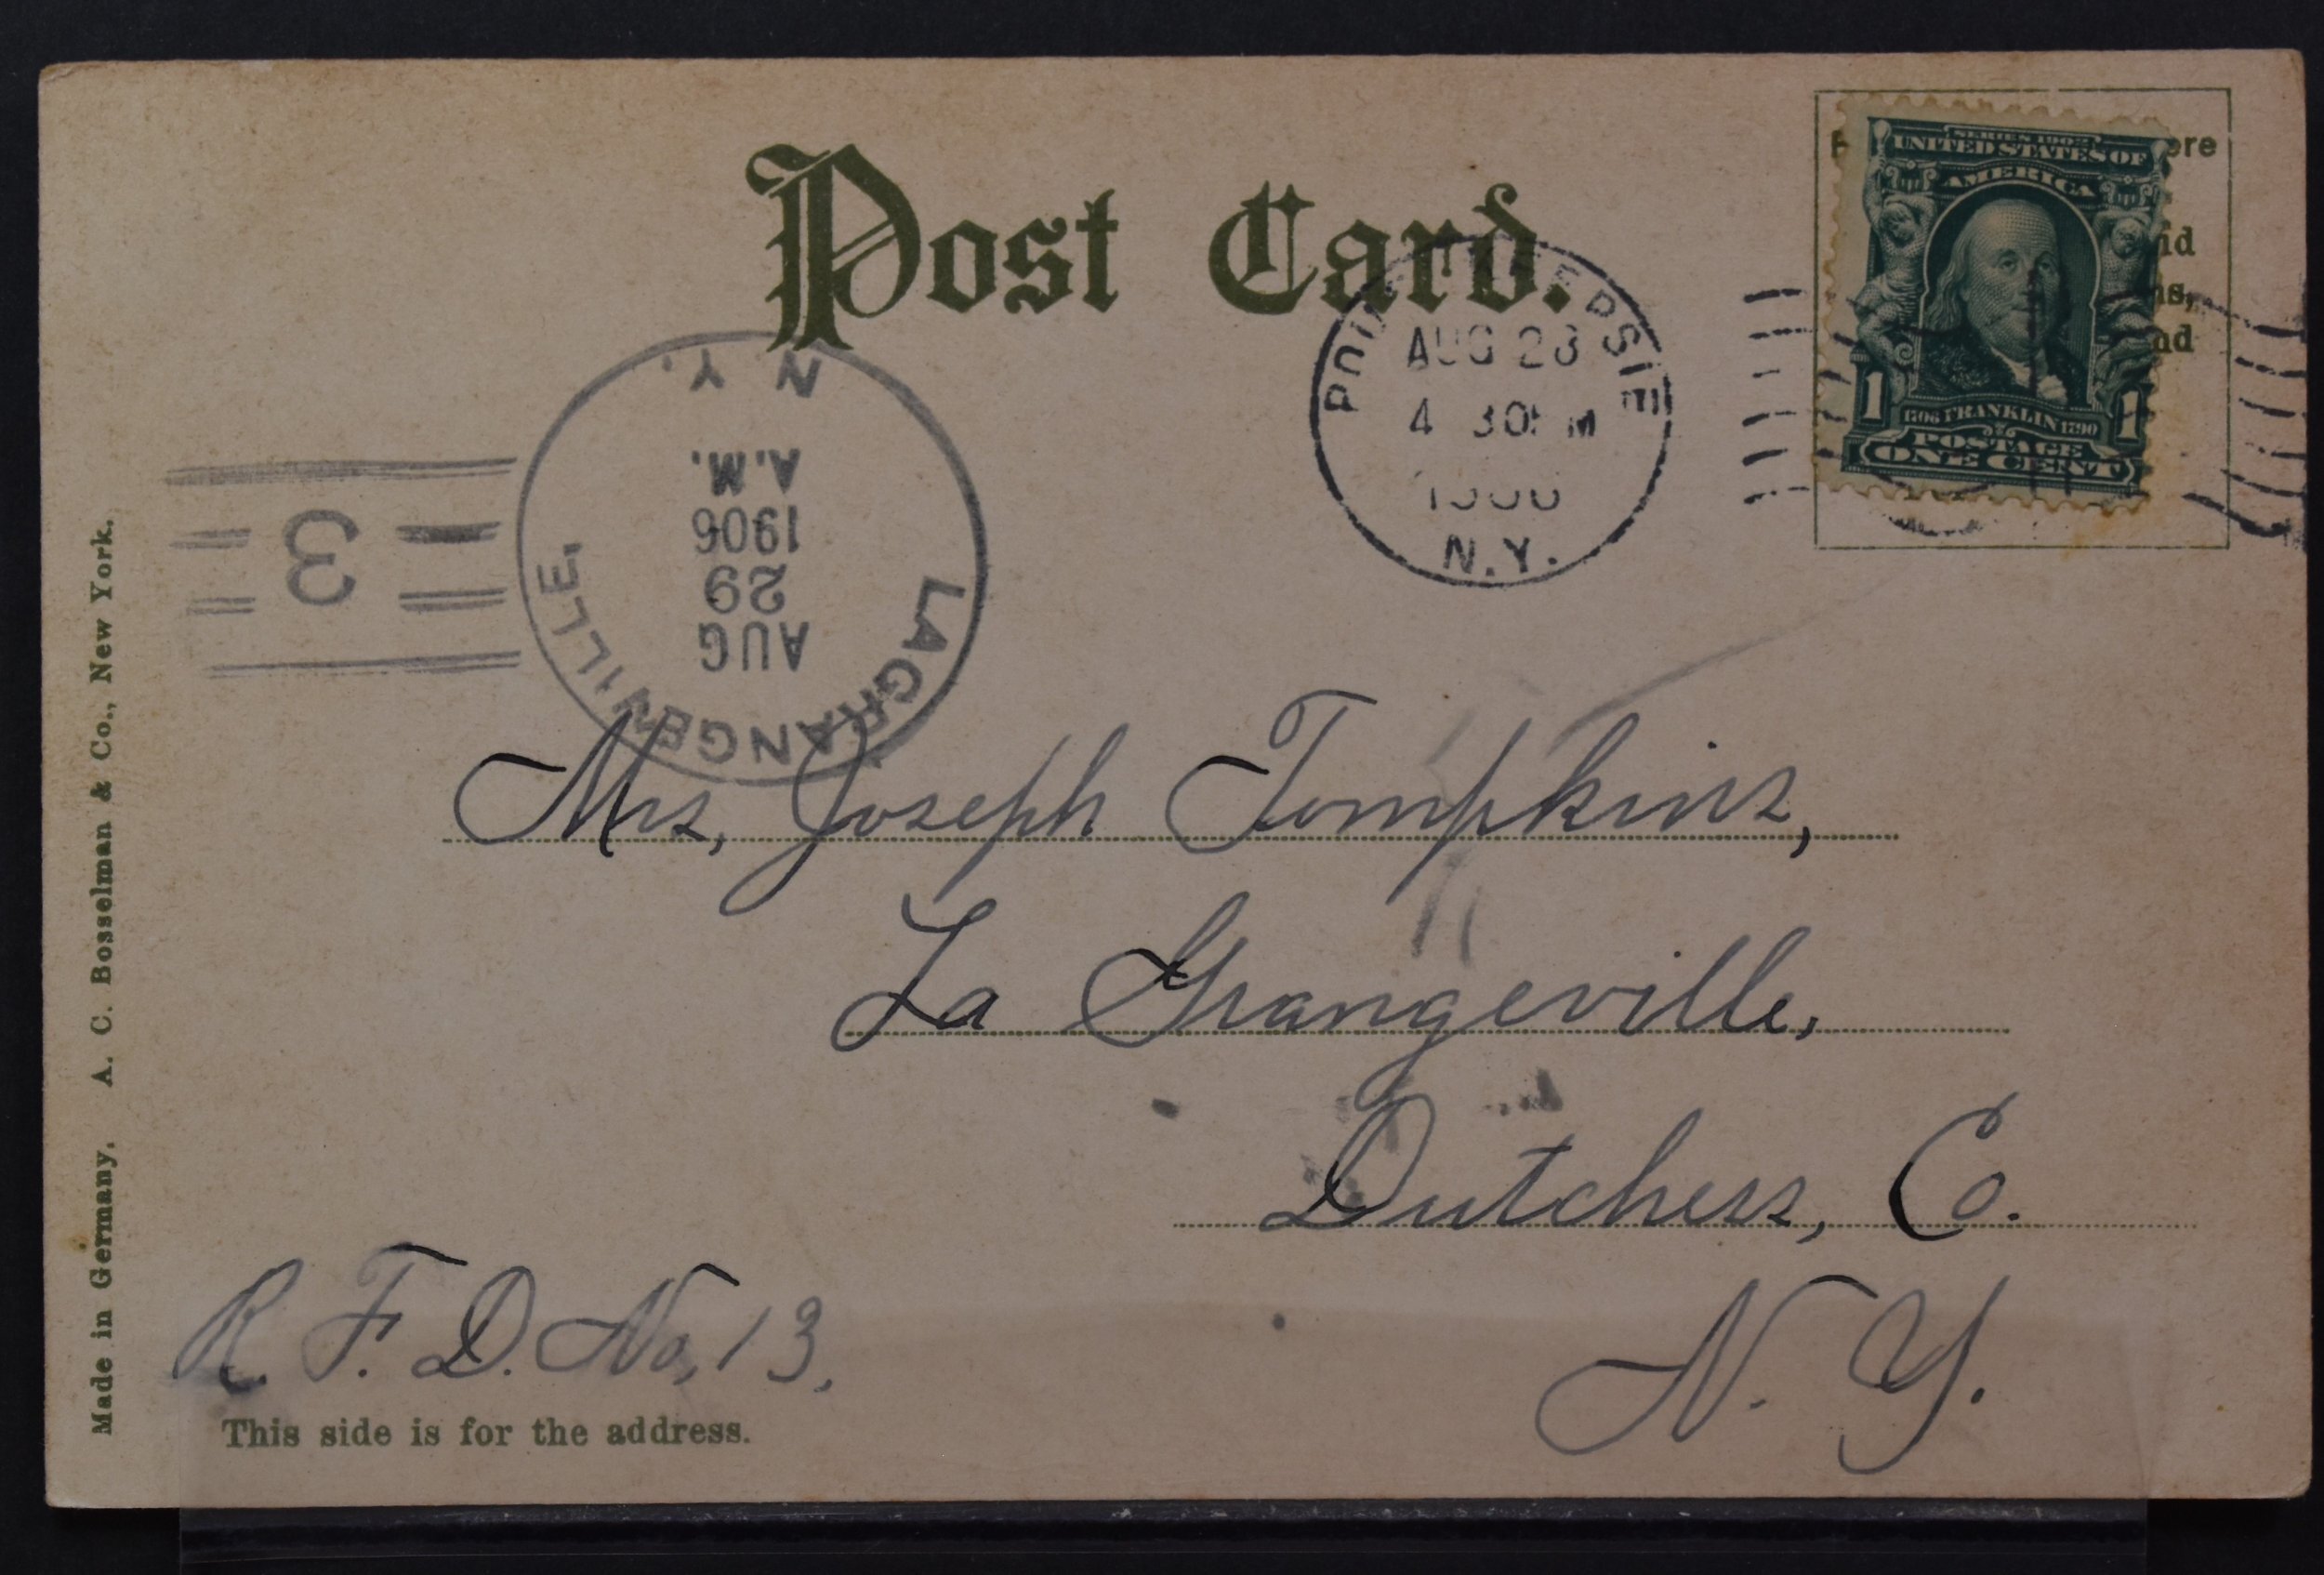 Post Card.
ere
id
ns,
nd
SERIES 1902
UNITED STATES OF
AMERICA
1 1
1706 FRANKLIN 1790
POSTAGE
ONE CENT
POUGHKEEPSIE
AUG 28
4 30 PM
1906
N.Y.
LAGRANGEVILLE,
AUG
29
1906
A.M.
N. Y.
3
Mrs, Joseph Tompkins,
La Grangeville,
Dutchess, Co.
N. Y.
R. F. D. No, 13,
This side is for the address.
Made in Germany. A. C. Bosselman & Co., New York.